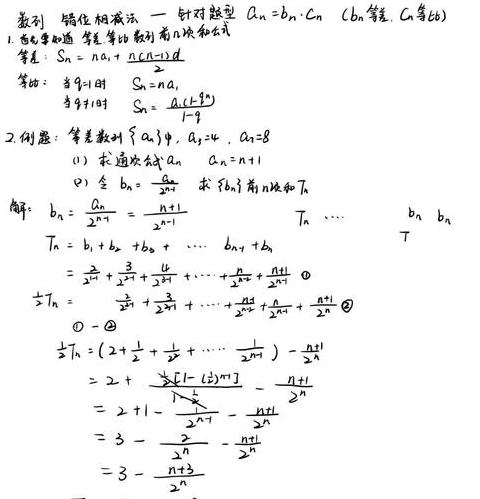 数列 错位相减法 — 针对题型 aₙ=bₙ·cₙ (bₙ等差, cₙ等比)
1. 首先要知道 等差等比数列前n项和公式
等差: Sₙ = na₁ + n(n-1)d/2
等比: 当q=1时 Sₙ=na₁
当q≠1时 Sₙ = a₁(1-qⁿ)/1-q
2. 例题: 等差数列{aₙ}中, a₃=4, a₇=8
(1) 求通项公式aₙ aₙ=n+1
(2) 令 bₙ = aₙ/2ⁿ⁻¹ 求{bₙ}前n项和Tₙ
解: bₙ = aₙ/2ⁿ⁻¹ = n+1/2ⁿ⁻¹ Tₙ ···· bₙ bₙ
Tₙ = b₁+b₂+b₃+ ···· bₙ₋₁+bₙ T
= 2/2¹⁻¹ + 3/2²⁻¹ + 4/2³⁻¹ + ···· + n/2ⁿ⁻² + n+1/2ⁿ⁻¹ ①
½Tₙ = 2/2²⁻¹ + 3/2³⁻¹ + ···· + n-1/2ⁿ⁻² + n/2ⁿ⁻¹ + n+1/2ⁿ ②
① - ②
½Tₙ = (2 + 1/2 + 1/2² + ···· 1/2ⁿ⁻¹) - n+1/2ⁿ
= 2 + ½[1-(½)ⁿ⁻¹]/1-½ - n+1/2ⁿ
= 2+1 - 1/2ⁿ⁻¹ - n+1/2ⁿ
= 3 - 2/2ⁿ - n+1/2ⁿ
= 3 - n+3/2ⁿ